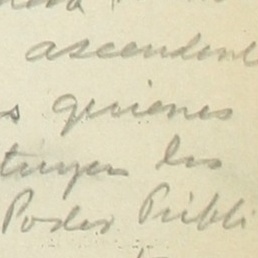 ascendent
s quienes
tuyen los
Poder Públi